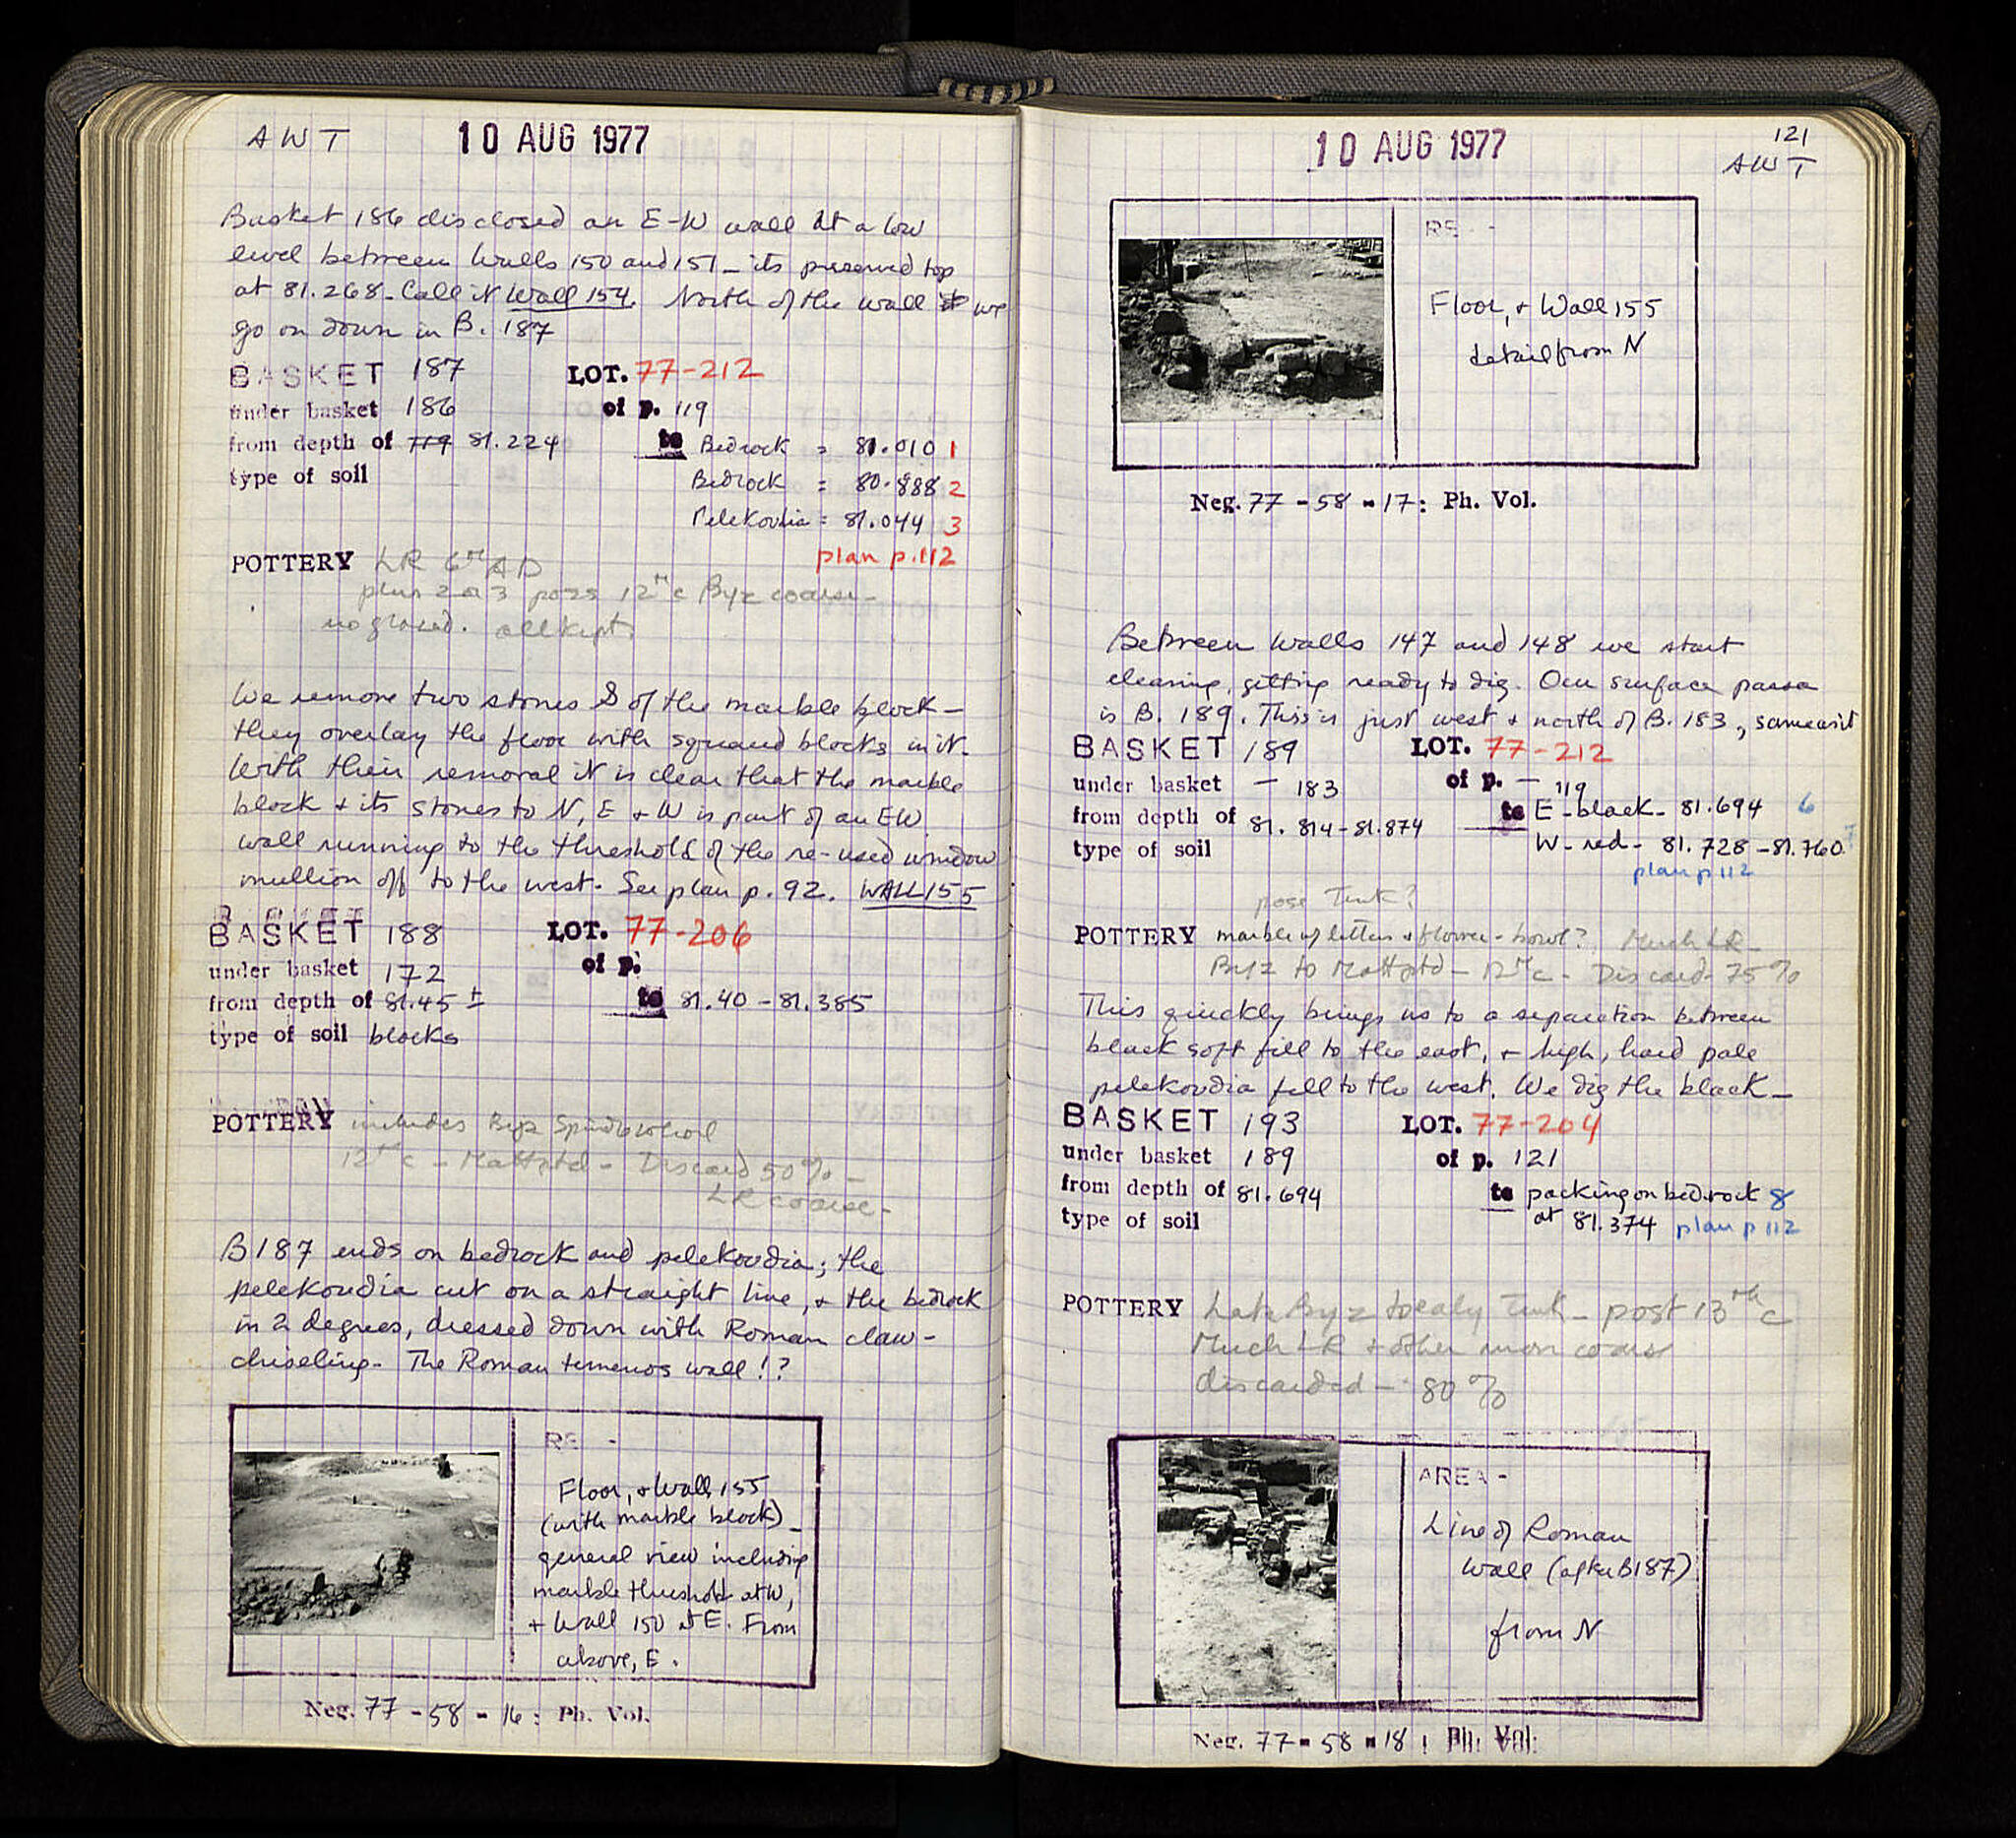 AWT
10 AUG 1977
Basket 186 disclosed an E-W wall at a low
level between Walls 150 and 151 - its preserved top
at 81.268. Call it Wall 154. North of the wall we
go on down in B. 187
BASKET 187 LOT. 77-212
under basket 186 of p. 119
from depth of 119 81.224 to Bedrock = 81.010 1
type of soil Bedrock = 80.888 2
Pelekoudia = 81.044 3
plan p. 112
POTTERY LR 6th AD
plus 2 or 3 poss 12th c Byz coarse -
no glazed. all kept
We remove two stones S of the marble block -
they overlay the floor with squared blocks in it.
With their removal it is clear that the marble
block + its stones to N, E + W is part of an EW
wall running to the threshold of the re-used window
mullion off to the west. See plan p. 92. WALL 155
BASKET 188 LOT. 77-206
under basket 172 of p.
from depth of 81.45 ± to 81.40 - 81.385
type of soil blocks
POTTERY includes Byz Spindlewhorl
12th c - Matt ptd - Discard 50% -
LR coarse -
B187 ends on bedrock and pelekoudia; the
pelekoudia cut on a straight line, + the bedrock
in 2 degrees, dressed down with Roman claw-
chiseling - The Roman temenos wall!?
RE -
Floor, + Wall 155
(with marble block) -
general view including
marble threshold at W,
+ Wall 150 at E. From
above, E.
Neg. 77-58-16: Ph. Vol.
10 AUG 1977
121
AWT
RE -
Floor, + Wall 155
detail from N
Neg. 77-58-17: Ph. Vol.
Between Walls 147 and 148 we start
clearing, getting ready to dig. Our surface passa
is B. 189. This is just west + north of B. 183, same as it
BASKET 189 LOT. 77-212
under basket - 183 of p. - 119
from depth of 81.814-81.874 to E - black - 81.694 6
type of soil W - red - 81.728 - 81.760 7
plan p 112
poss Turk?
POTTERY marble w letters + flower - bowl? Much LR -
Byz to Matt ptd - 12th c - Discard 75%
This quickly brings us to a separation between
black soft fill to the east, + high, hard pale
pelekoudia fill to the west. We dig the black -
BASKET 193 LOT. 77-204
under basket 189 of p. 121
from depth of 81.694 to packing on bedrock 8
type of soil at 81.374 plan p 112
POTTERY Late Byz to early Turk - post 13th c
Much LR + other coarse
discarded - 80%
AREA -
Line of Roman
Wall (after B187)
from N
Neg. 77-58-18: Ph. Vol.